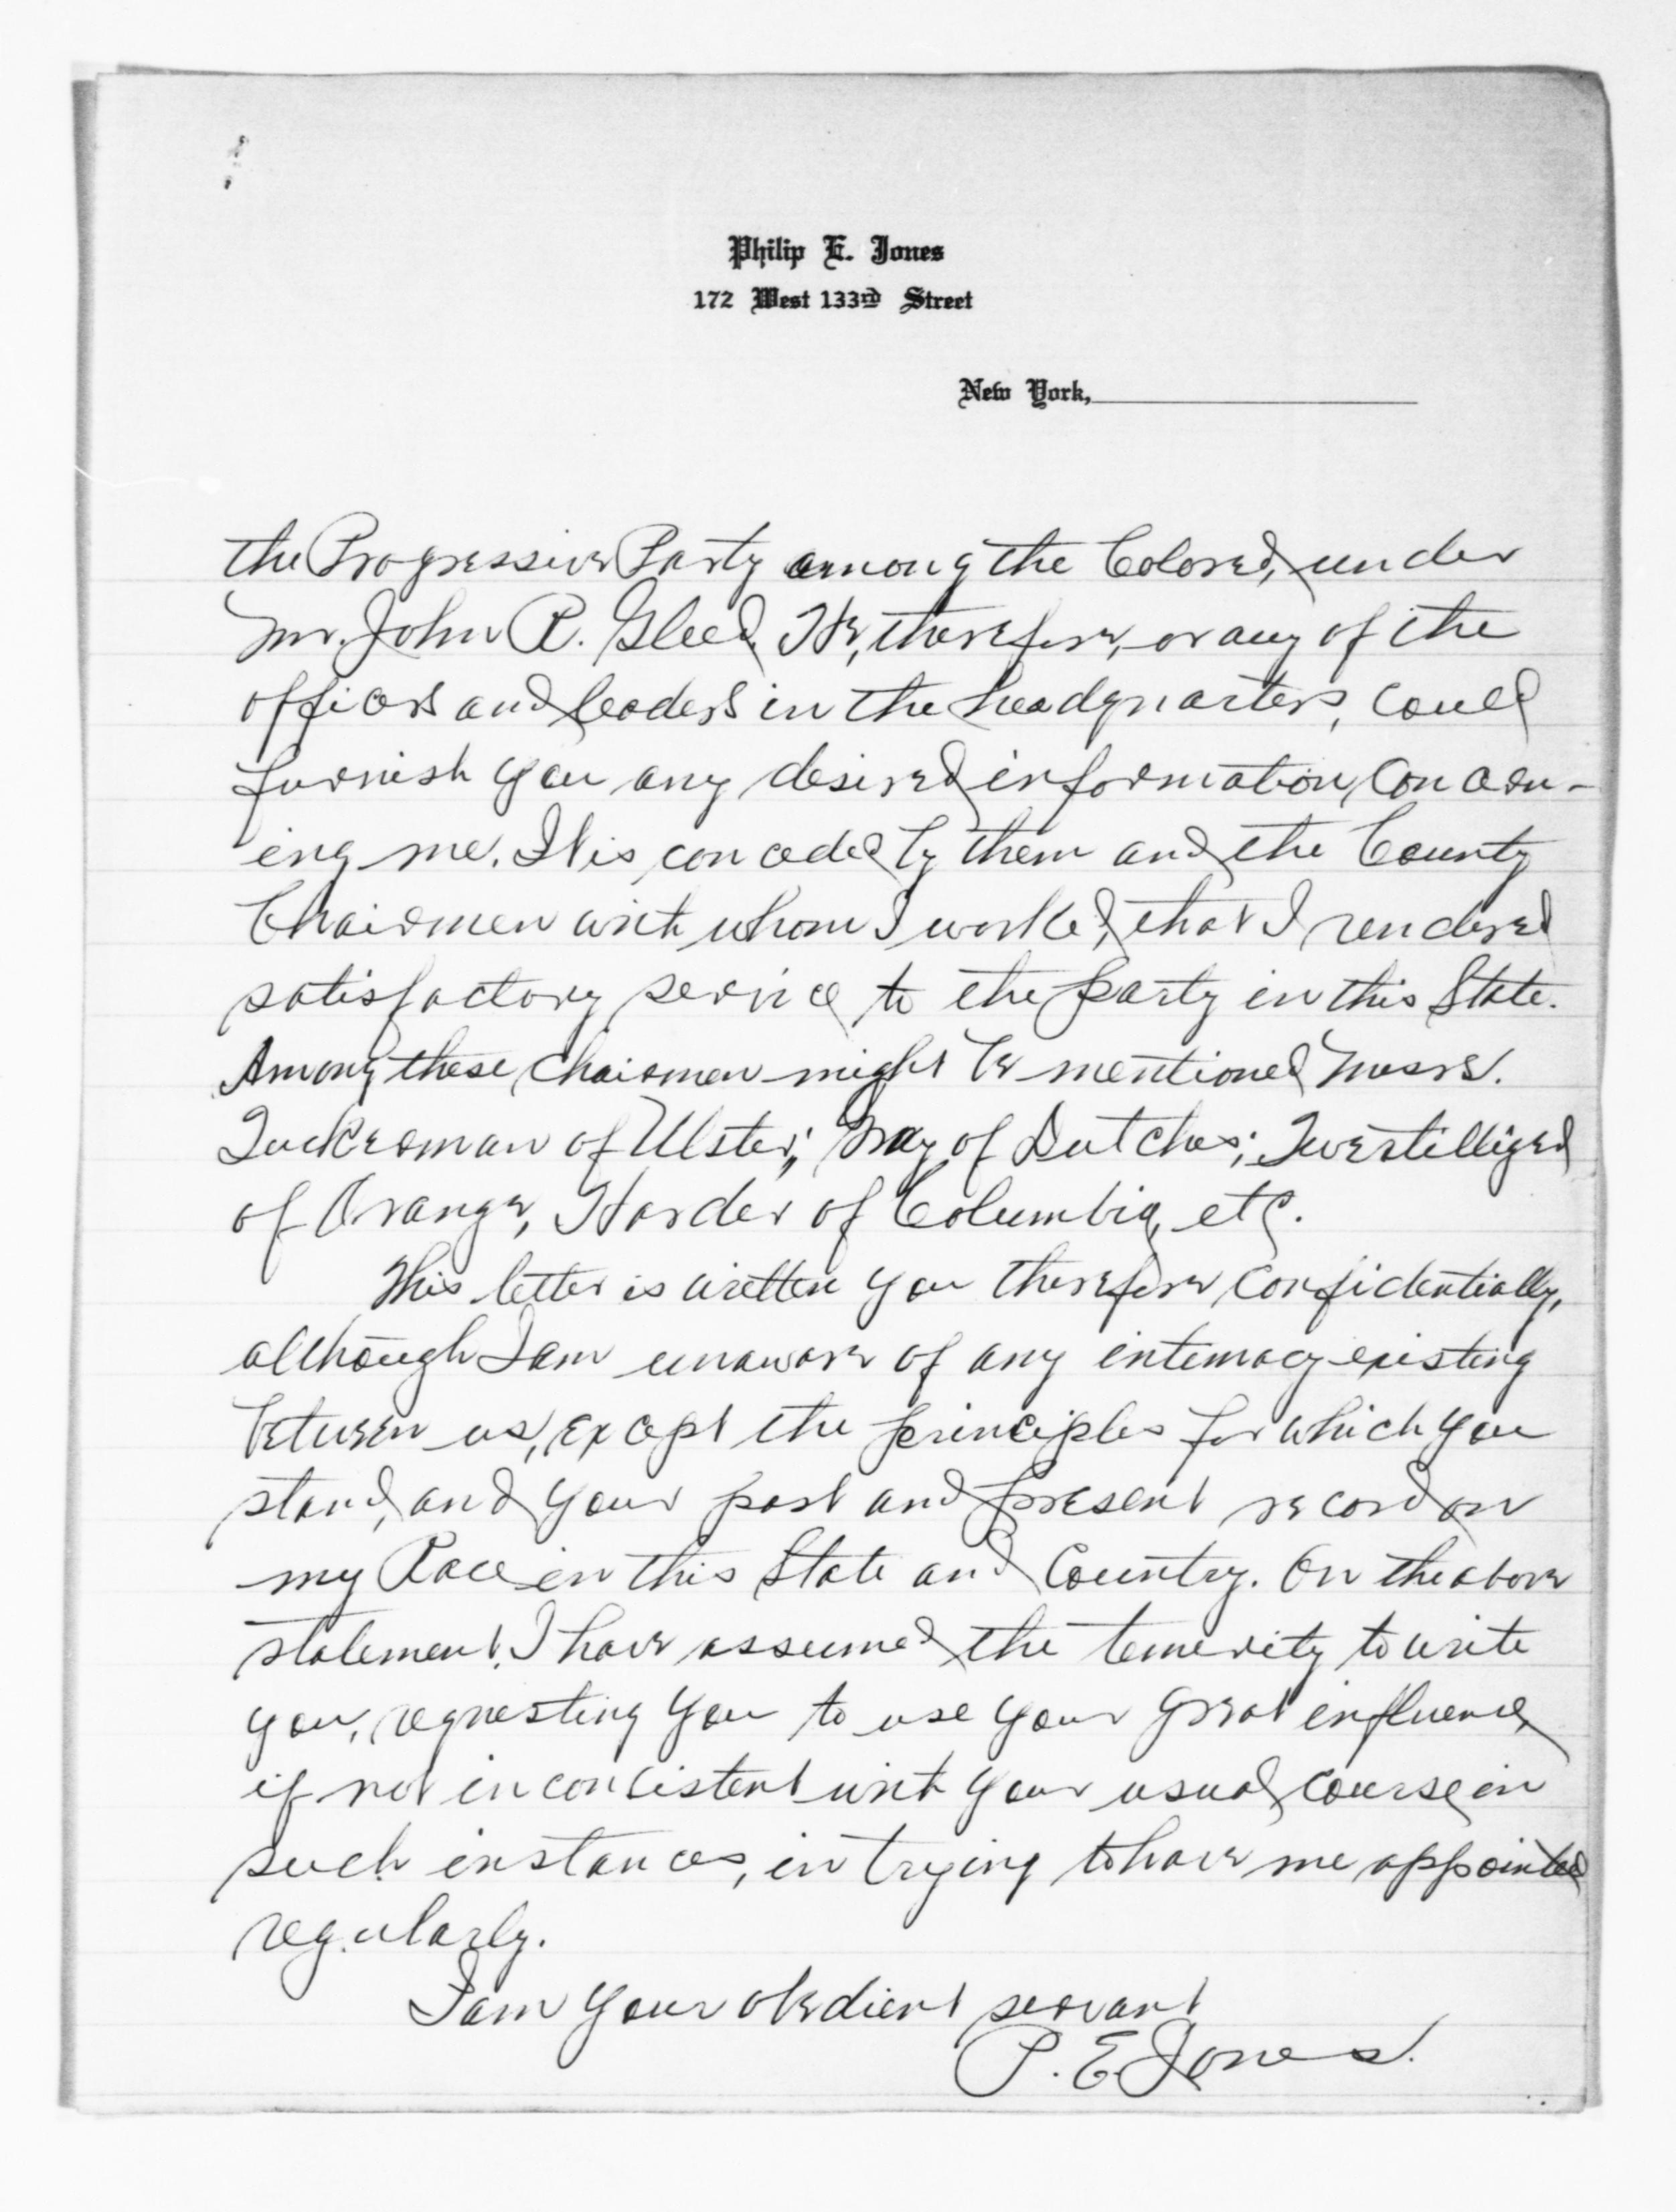 Philip E. Jones
172 West 133rd Street
New York,
the Progressive Party among the Colored, under
Mr. John R. Gleed. He, therefore, or any of the
officers and leaders in the headquarters, could
furnish you any desired information concern-
ing me. It is conceded by them and the County
Chairmen with whom I worked, that I rendered
satisfactory service to the party in this State.
Among these chairmen might be mentioned Messrs.
Tuckerman of Ulster; of Dutches;
of Orange, Harder of Columbia, etc.
This letter is written you therefore confidentially,
although I am unaware of any intimacy existing
between us, except the principles for which you
stand, and your past and present record on
my Race in this State and Country. On the above
statement, I have assumed the temerity to write
you, requesting you to use your great influence,
if not inconsistent with your usual course in
such instances, in trying to have me appointed
regularly.
I am your obedient servant
P. E. Jones.